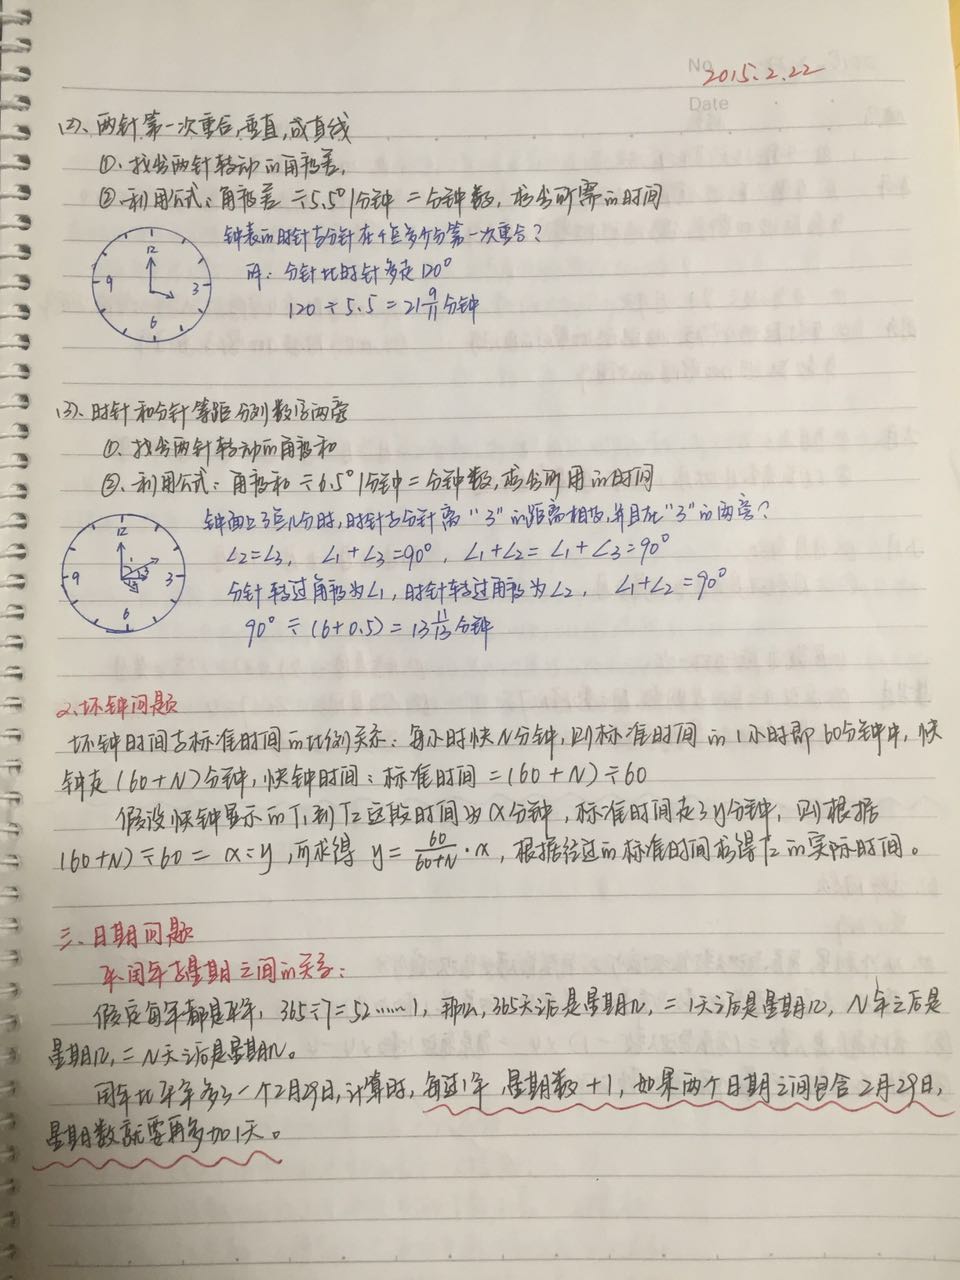 No 2015.2.22
Date
(2)、两针第一次重合,垂直,成直线
①、找出两针转动的角度差,
②、利用公式:角度差÷5.5°/分钟=分钟数,求出所需的时间
钟表的时针与分针在4点多少分第一次重合?
解:分针比时针多走120°
12
9 3
6
120÷5.5=21 9/11分钟
(3)、时针和分针等距分列数字两旁
①、找出两针转动的角度和
②、利用公式:角度和÷6.5°/分钟=分钟数,求出所用的时间
钟面上3点几分时,时针与分针离“3”的距离相等,并且在“3”的两旁?
12
9 3
6
∠2=∠3, ∠1+∠3=90°, ∠1+∠2=∠1+∠3=90°
分针转过角度为∠1,时针转过角度为∠2, ∠1+∠2=90°
90°÷(6+0.5)=13 11/13分钟
2、坏钟问题
坏钟时间与标准时间的比例关系:每小时快N分钟,则标准时间的1小时即60分钟中,快
钟走(60+N)分钟,快钟时间:标准时间=(60+N)÷60
假设快钟显示的T₁到T₂这段时间为x分钟,标准时间走了y分钟,则根据
(60+N)÷60=x:y,而求得 y=60/(60+N)·x,根据经过的标准时间求得T₂的实际时间。
三、日期问题
平闰年与星期之间的关系:
假定每年都是平年,365÷7=52……1,那么,365天后是星期几,=1天后是星期几,N年之后是
星期几,=N天之后是星期几。
闰年比平年多了一个2月29日,计算时,每过1年,星期数+1,如果两个日期之间包含2月29日,
星期数就要再多加1天。